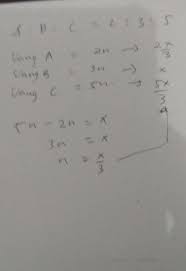 A : B : C = 2 : 3 : 5
Uang A = 2n → 2x/3
Uang B = 3n → x
Uang C = 5n → 5x/3
5n - 2n = x
3n = x
n = x/3